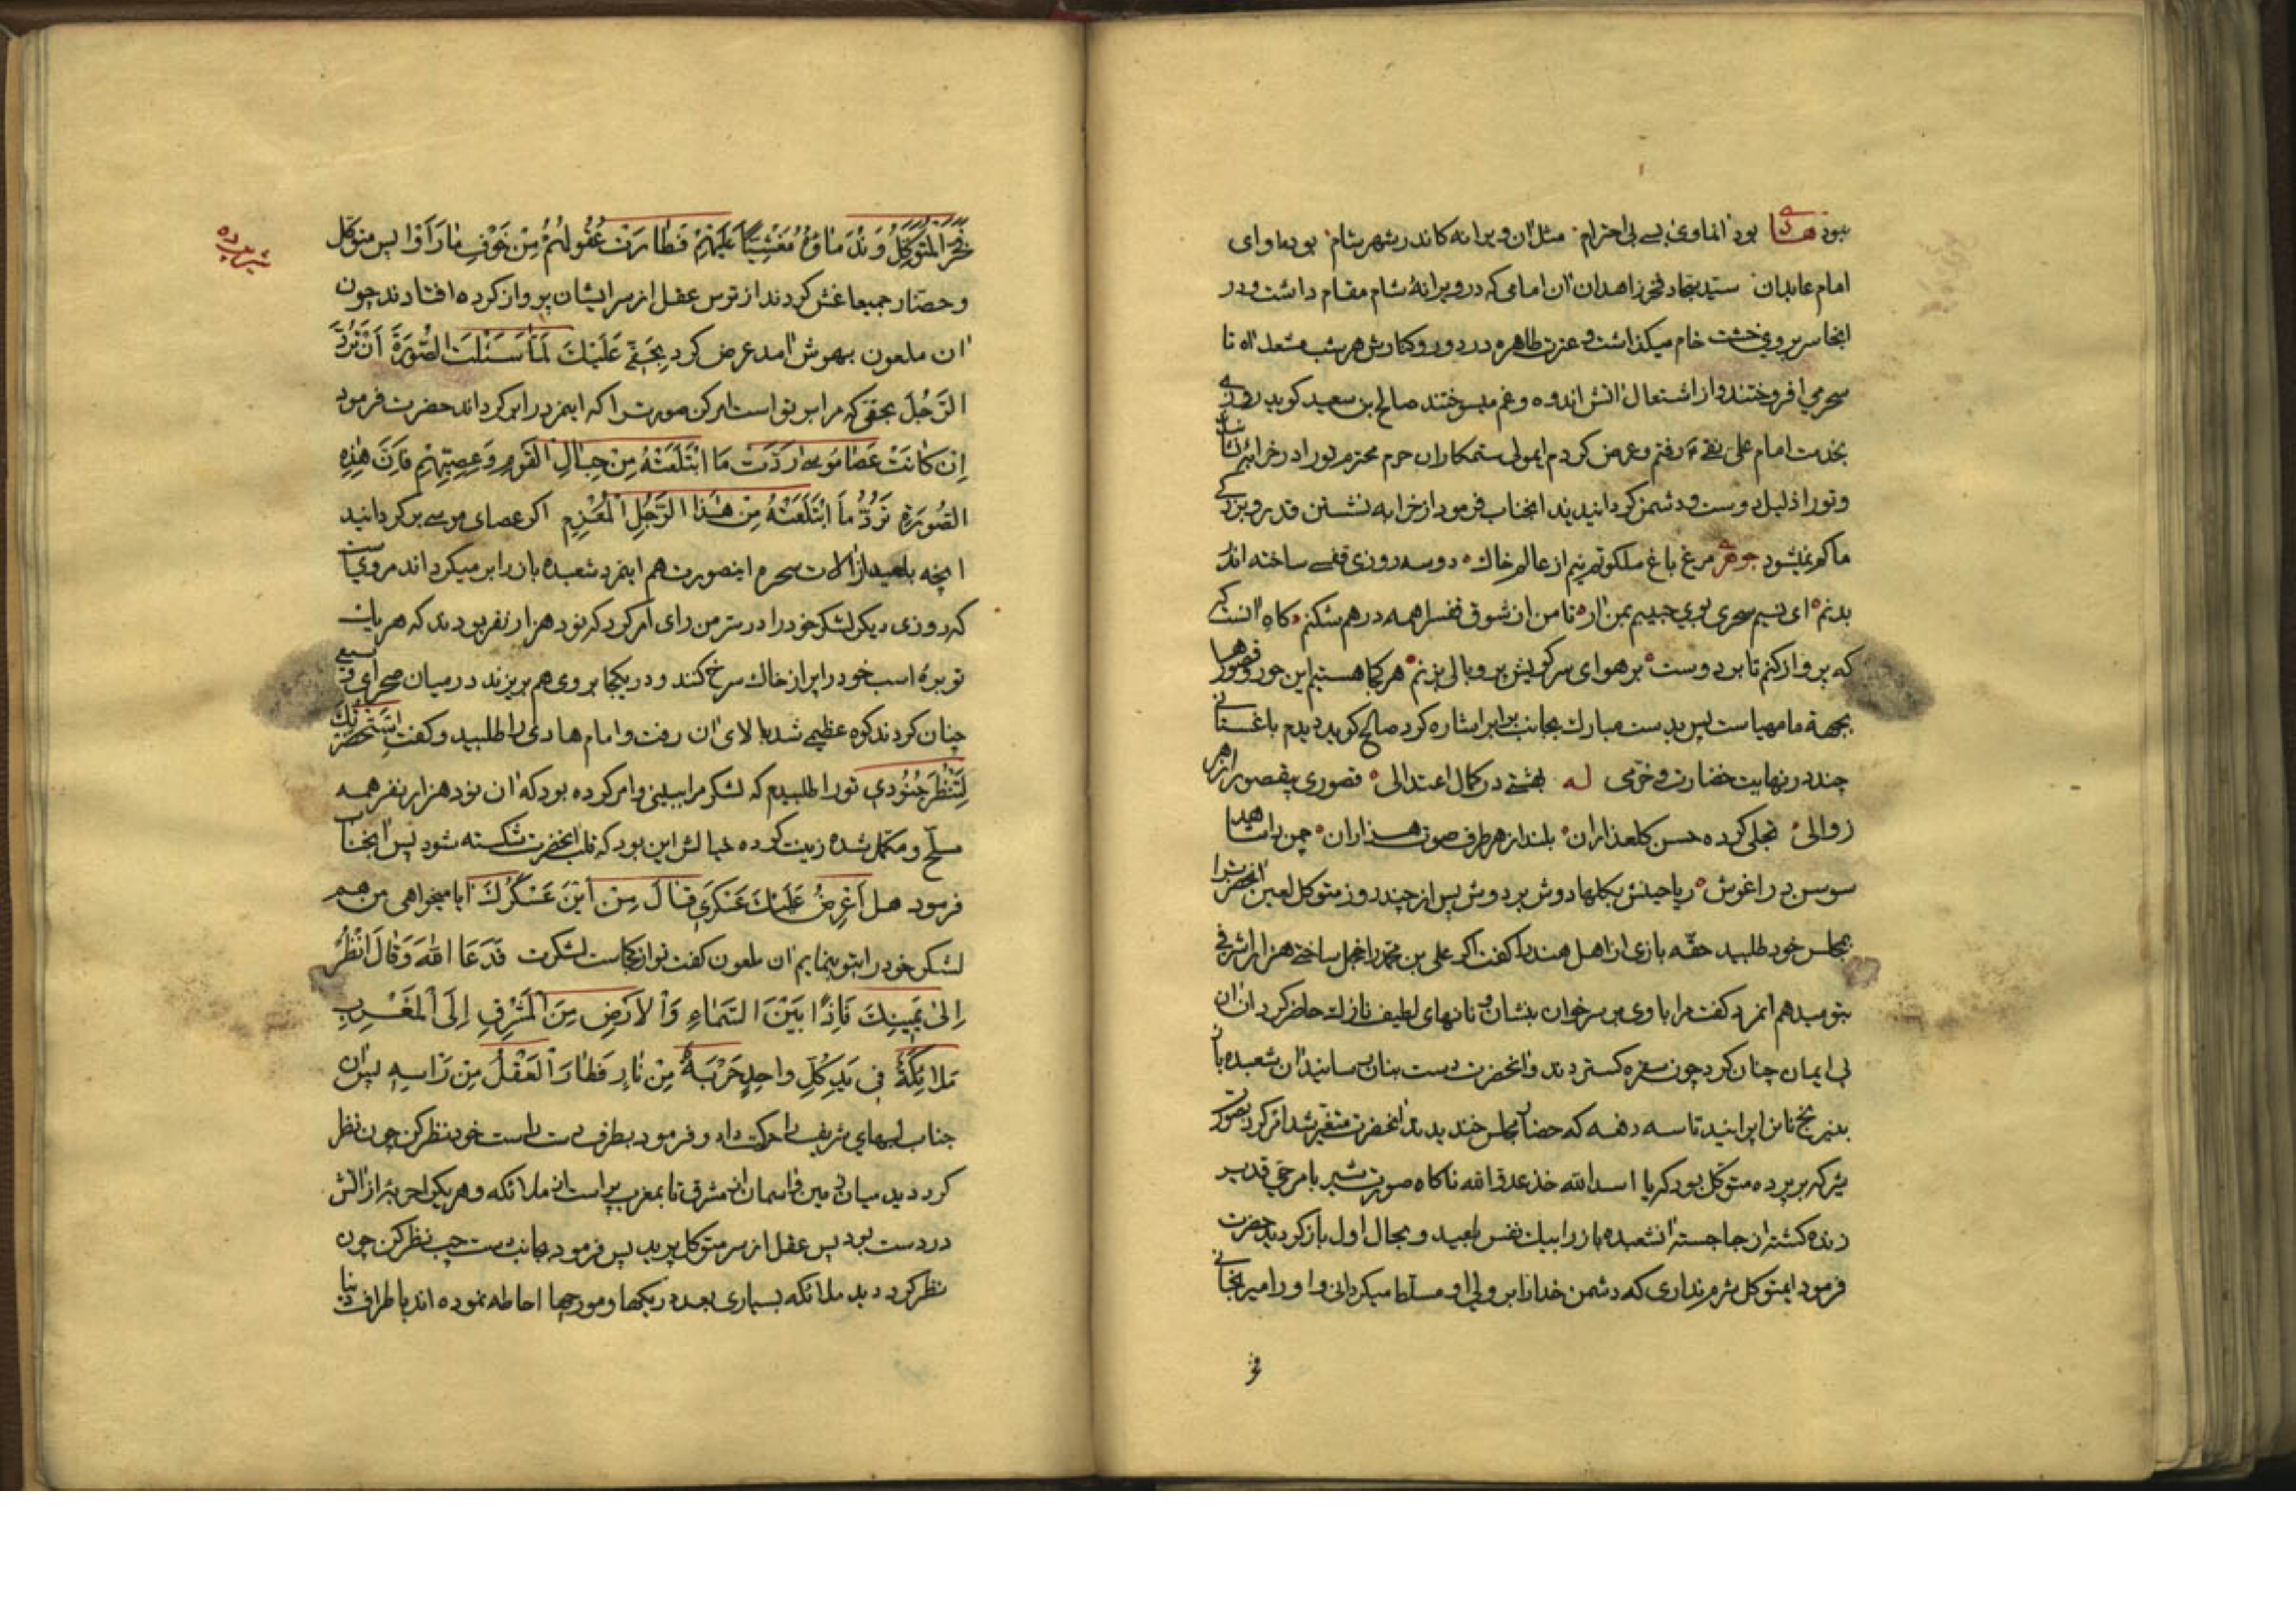 نبود هادی بود انماوی بسے بی احترام مثل ان ویرانه کاندر شهر شام بود ماوای
امام عابدان سید سجاد فخر زاهدان ان امامی که در ویرانهٔ شام مقام داشت و در
انجا سر بروی خشت خام میکذاشت و عترت طاهره در دور و کنارش هر شب مشعل اه تا
سحر می افروختند و از اشتعال اتش اندوه و غم میسوختند صالح بن سعید کوید روزی
بخدمت امام علی نقی رفتم و عرض کردم ایمولی ستمکاران حرم محترم تو را در خرابه نشانند
و تو را ذلیل دوست و دشمن کردانیدند انجناب فرمود از خرابه نشستن قدر و بزرکی
ما کم نمیشود جوهری مرغ باغ ملکوتم نیم از عالم خاك دو سه روزی قفسے ساخته اند
بدنم ای نسیم سحری بوی حبیبم بمن ار تا من از شوق قفس را همه در هم شکنم کاه انست
که پرواز کنم تا بر دوست بر هوای سر کویش پر و بالی بزنم هر کجا هستیم این حور و قصورها
بجهة ما مهیاست پس بدست مبارك بجانب برابر اشاره کرد صالح کوید دیدم باغستانی
چند در نهایت خضارت و خرمی له بهشتے در کمال اعتدالی قصوری بیقصور از هر
زوالی تجلی کرده حسن کلعذاران بلند از هر طرف صوت هذاران چمن را شاهد
سوسن در اغوش ریاحینش بکلها دوش بر دوش پس از چند روز متوکل لعین انحضرترا
بمجلس خود طلبید حقه بازی از اهل هند را کفت اکر علی بن محمد را خجل ساختی هزار اشرفی
بتو میدهم انمرد کفت مرا با وی بر سر خوان بنشان و نانهای لطیف نازك حاضر کردان ان
بی ایمان چنان کرد چون سفره کستردند و انحضرت دست بنان رسانید ان شعبده باز
بنیرنج نان را پرانید تا سه دفعه که حضار مجلس خندیدند انحضرت متغیر شد امر کرد بصورت
شیر که بر پرده متوکل بود که یا اسد الله خذ عدو الله ناکاه صورت شیر بامر حی قدیر
زنده کشته از جا جسته ان شعبده باز را بیك نفس بلعید و بحال اول باز کردید حضرت
فرمود ایمتوکل شرم نداری که دشمن خدا را بر ولی او مسلط میکردانی و او را میرنجانی
فخر
فخر المتوکل و ندماؤه مغشیا علیهم فطارت عقولهم من خوف ما رأوا پس متوکل
شیر پرده
و حضار جمیعا غش کردند از ترس عقل از سر ایشان پرواز کرده افتادند چون
ان ملعون بهوش امد عرض کرد بحقی علیك لما سئلت الصورة ان ترد
الرجل بحقی که مرا بر تو است امر کن صورت را که اینمرد را بر کرداند حضرت فرمود
ان کانت عصا موسے ردت ما ابتلعته من حبال القوم و عصیهم فان هذه
الصورة ترد ما ابتلعته من هذا الرجل المعزم اکر عصای موسے بر کردانید
انچه بلعید از الات سحر اینصورت هم اینمرد شعبده باز را بر میکرداند مرویست
که روزی دیکر لشکر خود را در سر من رای امر کرد که نود هزار نفر بودند که هر یك
توبرهٔ اسب خود را پر از خاك سرخ کنند و در یکجا بروی هم بریزند در میان صحرای وسیعی
چنان کردند کوه عظیمے شد بالای ان رفت و امام هادی را طلبید و کفت استحضرتك
لتنظر جنودی تو را طلبیدم که لشکر مرا ببینی و امر کرده بود که ان نود هزار نفر همه
مسلح و مکمل شده زینت کرده خیالش این بود که قلب انحضرت شکسته شود پس انجناب
فرمود هل اعرض علیك عسکری فقال من این عسکرك ایا میخواهی من هم
لشکر خود را بتو بنمایم ان ملعون کفت تو از کجاست لشکرت فدعا الله و قال انظر
الی یمینك فاذا بین السماء و الارض من المشرق الی المغرب
ملائکة فی ید کل واحد حربة من نار فطار العقل من راسه پس ان
جناب لبهای شریف را حرکت داد و فرمود بطرف دست راست خود نظر کن چون نظر
کرد دید میان زمین و اسمان از مشرق تا بمغرب پر است از ملائکه و هر یکی را حربهٔ از اتش
در دست بود پس عقل از سر متوکل پرید پس فرمود بجانب دست چپ نظر کن چون
نظر کرد دید ملائکه بسیاری بعدد ریکها و مورچها احاطه نموده اند باطراف دنیا